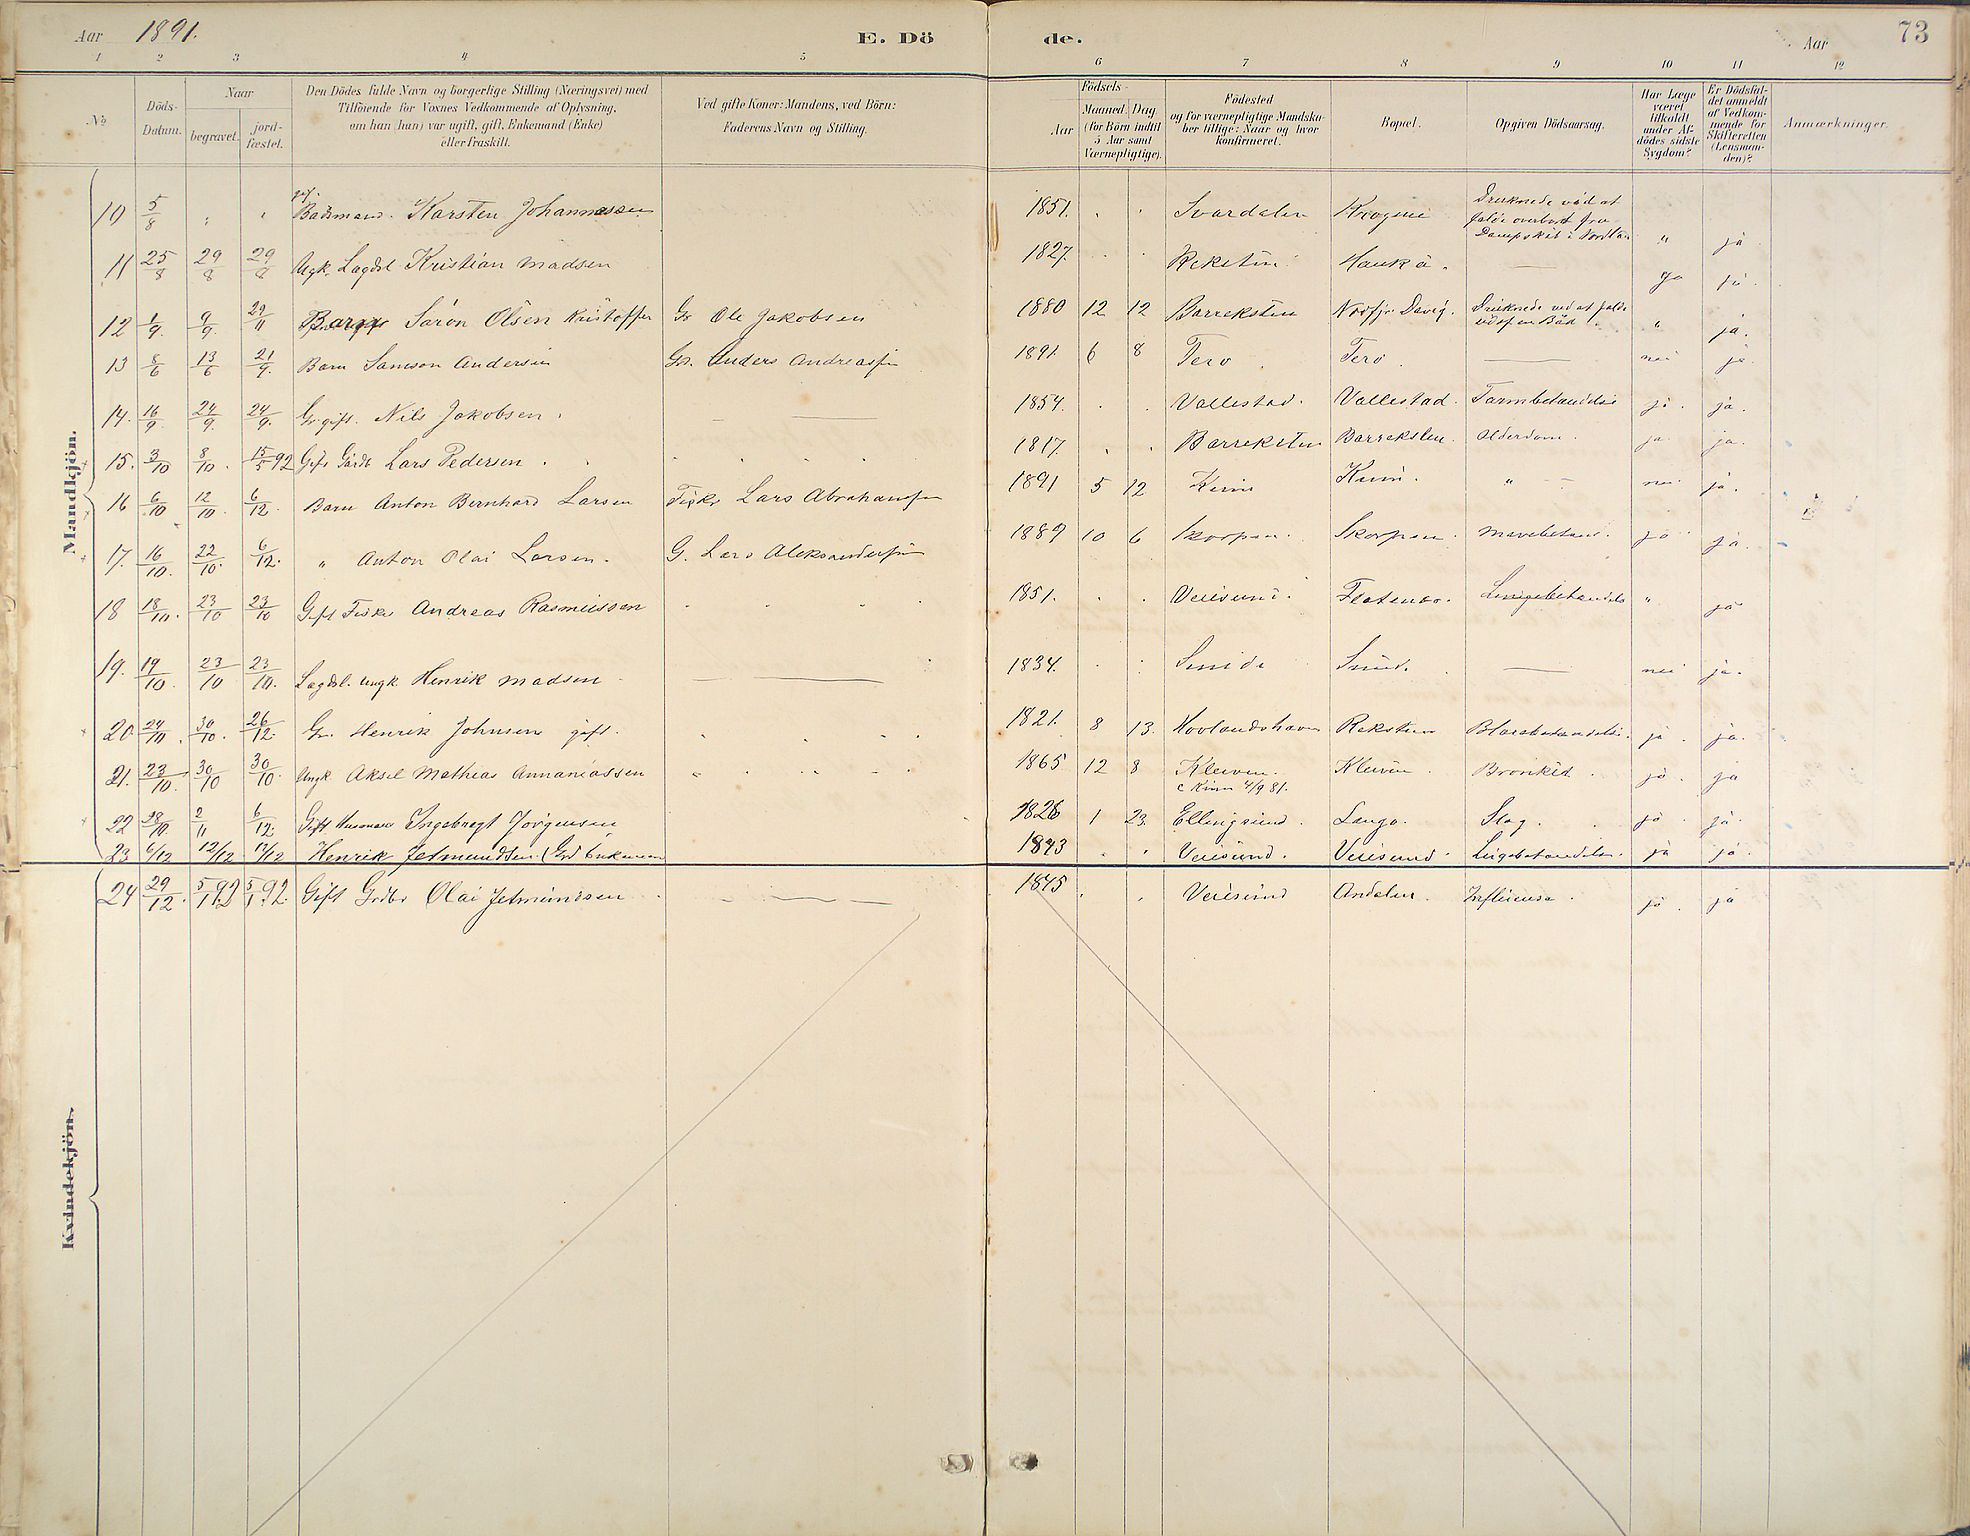 Aar 1891. E. Döde. Aar 73
1 2 3 4 5 6 7 8 9 10 11 12
No.
Döds-Datum.
Naar
begravet.
jord-fæstet.
Den Dödes fulde Navn og borgerlige Stilling (Næringsvei) med
Tilföiende for Voxnes Vedkommende af Oplysning,
om han (hun) var ugift, gift, Enkemand (Enke)
eller fraskilt.
Ved gifte Koner: Mandens, ved Börn:
Faderens Navn og Stilling.
Födsels-
Aar
Maaned. Dag
(for Börn indtil
5 Aar samt
Værnepligtige).
Födested
og for værnepligtige Mandska-
ber tillige: Naar og hvor
konfirmeret.
Bopæl.
Opgiven Dödsaarsag.
Har Læge
været
tilkaldt
under Af-
dödes sidste
Sygdom?
Er Dödsfal-
det anmeldt
af Vedkom-
mende for
Skifteretten
(Lensman-
den)?
Anmærkninger.
Mandkjön.
10 5/8 " " gift. Baadsmand. Karsten Johannessen 1851. Svardalen Druknede ved at falde overbord fra Dampskib i Nordland " ja
11 25/8 29/8 29/8 Ugk. Lægdsl Kristian Madsen 1827. Reksten Haukå. — ja ja.
12 1/9. 9/9 29/11 Søren Olsen Kristoffer Gr Ole Jakobsen 1880 12 12 Barreksten Nordfjr Davig. Druknede ved at falde ud af en Båd. " ja.
13 8/6 13/6 21/9. Barn Samson Andersen Gr. Anders Andreassen 1891. 6 8 Terø Terø. — nei ja.
14. 16/9 24/9. 24/9. Gr. gift. Nils Jakobsen. — 1854. Vallestad. Vallestad. Tarmbetændelse ja. ja.
15. 3/10 8/10. 15/5 92 Gift Gårdb Lars Pedersen. 1817. Barreksten Barreksten. Alderdom. ja. ja.
16 6/10 12/10. 6/12. Barn Anton Bernhard Larsen Fisker Lars Abrahamsen 1891 5 12 Kinn Kinn. " nei ja.
17. 16/10. 22/10. 6/12. " Anton Olai Larsen. G. Lars Aleksandersen 1889 10 6 Skorpen. Skorpen. Mavebetænd. ja ja.
18 18/10. 23/10 23/10 Gift Fisker Andreas Rasmussen 1851. Veiesund. Flatenes. Lungebetændelse " ja
19. 19/10. 23/10 23/10. Lægdsl. Ungk. Henrik Madsen — 1834. — nei ja.
20 24/10. 30/10. 26/12. Gr. Henrik Johnsen gift. 1821. 8 13. Hovlandshavn Reksten Blærebetændelse. ja. ja.
21. 23/10. 30/10 30/10. Ungk Aksel Mathias Annaniassen 1865 12 8 Kleiven. c Kinn 4/9 81. Kleiven. Bronkit. ja. ja
22 28/10. 2/11 6/12. Gift Husmand Ingebregt Jørgensen 1826 1 23. Ellingsund. Langø. Slag. ja. ja.
23 6/12 12/12 13/12 Henrik Jetmundsen (Grd Enkemand 1843 Veiesund. Veiesund. Lungebetændelse. ja ja.
24 29/12. 5/1 92 5/1 92. Gift Grdbr Olai Jetmundsen. — 1845 Veiesund Andalen. Influensa. ja. ja
Kvindekjön.